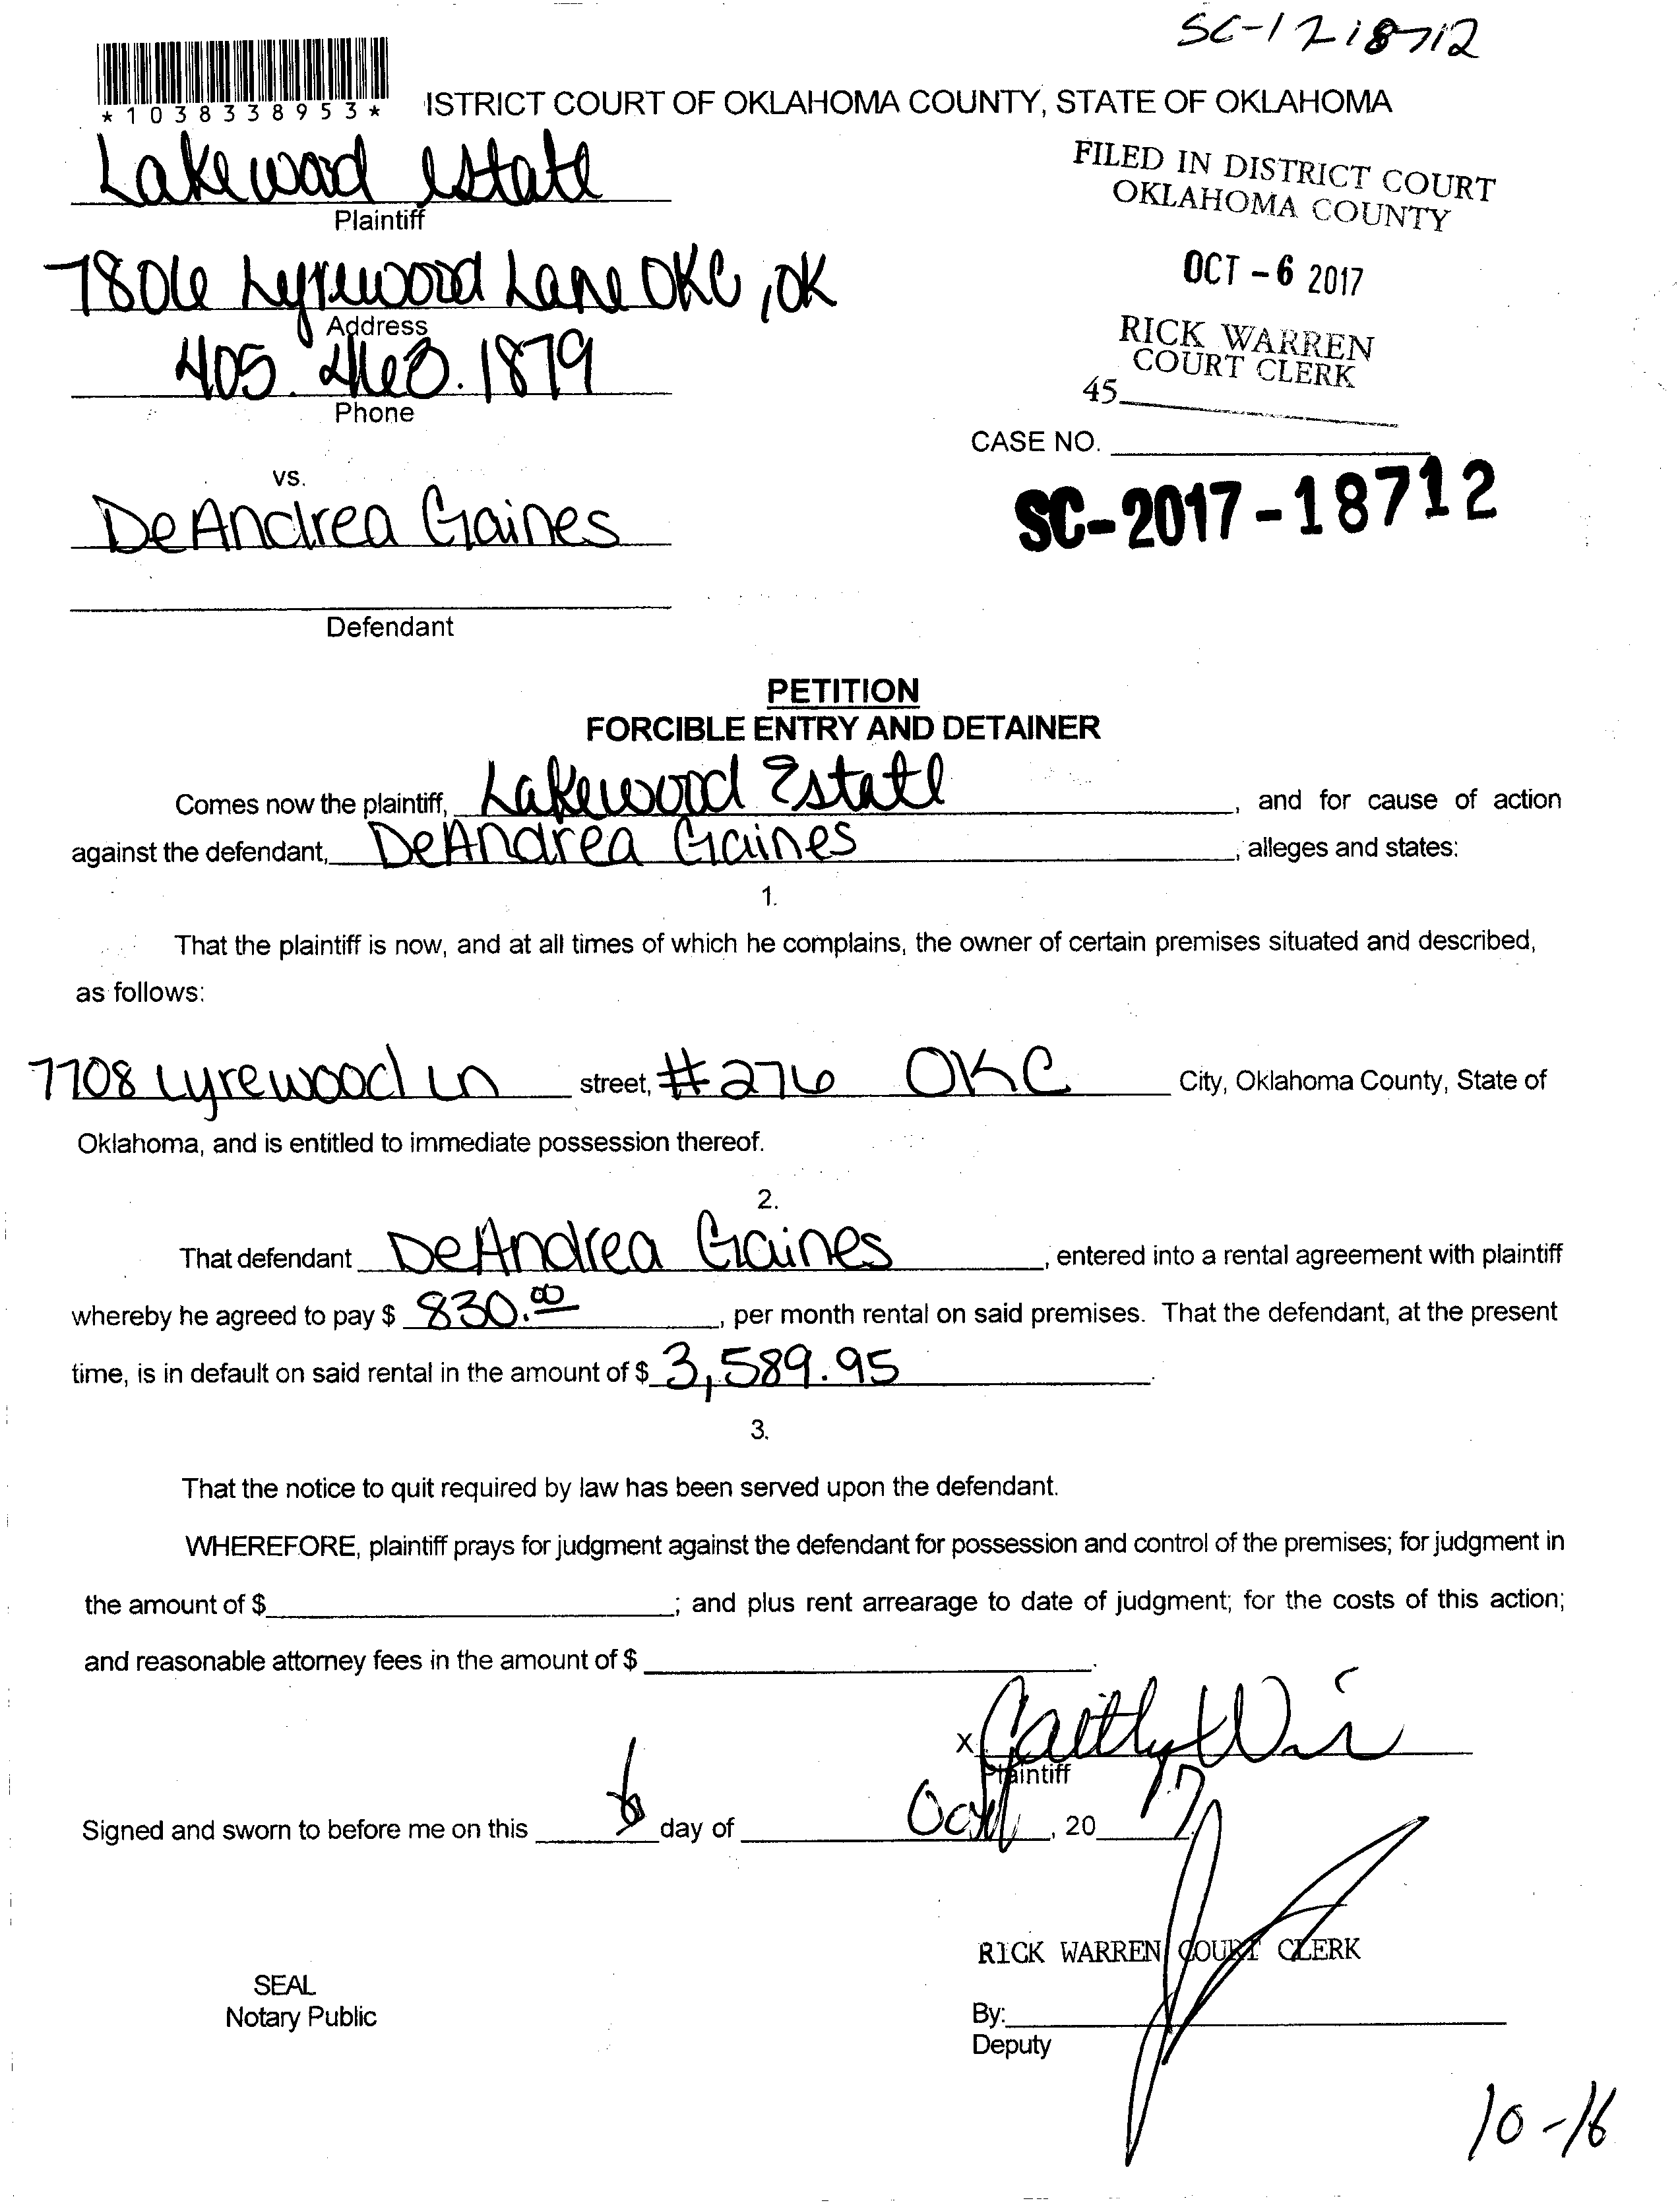 SC-17 18712
*1038338953*
ISTRICT COURT OF OKLAHOMA COUNTY, STATE OF OKLAHOMA
Lakewood Estate
Plaintiff
FILED IN DISTRICT COURT
OKLAHOMA COUNTY
OCT - 6 2017
RICK WARREN
COURT CLERK
45
7806 Lyrewood Lane OKC, OK
Address
405. 463. 1879
Phone
CASE NO.
SC-2017-18712
vs.
DeAndrea Gaines
Defendant
PETITION
FORCIBLE ENTRY AND DETAINER
Comes now the plaintiff, Lakewood Estate, and for cause of action
against the defendant, DeAndrea Gaines, alleges and states:
1.
That the plaintiff is now, and at all times of which he complains, the owner of certain premises situated and described,
as follows:
7708 Lyrewood Ln street, #276 OKC City, Oklahoma County, State of
Oklahoma, and is entitled to immediate possession thereof.
2.
That defendant DeAndrea Gaines, entered into a rental agreement with plaintiff
whereby he agreed to pay $ 830.00, per month rental on said premises. That the defendant, at the present
time, is in default on said rental in the amount of $ 3,589.95.
3.
That the notice to quit required by law has been served upon the defendant.
WHEREFORE, plaintiff prays for judgment against the defendant for possession and control of the premises; for judgment in
the amount of $; and plus rent arrearage to date of judgment; for the costs of this action;
and reasonable attorney fees in the amount of $.
X
Plaintiff
Signed and sworn to before me on this 6 day of Oct, 20 17
RICK WARREN COURT CLERK
SEAL
Notary Public
By:
Deputy
10-16